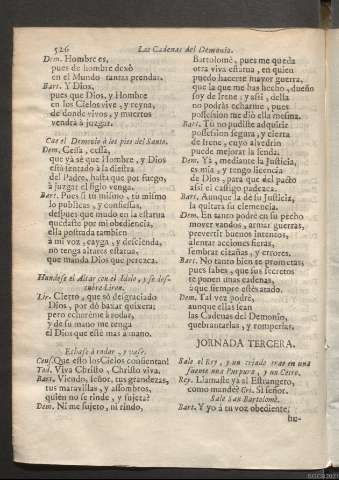 526
Las Cadenas del Demonio.
Dem. Hombre es,
pues de hombre dexò
en el Mundo tantas prendas.
Bart. Y Dios,
pues que Dios, y Hombre
en los Cielos vive, y reyna,
de donde vivos, y muertos
vendrà à juzgar.
Cae el Demonio à los pies del Santo.
Dem. Cessa, cessa,
que yà sè que Hombre, y Dios
està sentado à la diestra
del Padre, hasta que por fuego,
à juzgar el siglo venga.
Bart. Pues si tu mismo, tu mismo
lo publicas, y confiessas,
despues que mudo en la estatua
quedaste por mi obediencia,
ella postrada tambien
à mi voz, cayga, y descienda,
no tenga altares estatua,
que manda Dios que perezca.
Hundese el Altar con el Idolo, y se descubre Liron.
Lir. Cierto, que sò desgraciado
Dios, por dò baxar quixera;
pero echarème à rodar,
y de su mano me tenga
el Dios que està mas à mano.
Echase à rodar, y vase.
Ceus. Que esto los Cielos consientan!
Tod. Viva Christo, Christo viva.
Bart. Viendo, señor, tus grandezas,
tus maravillas, y assombros,
quien no se rinde, y sujeta?
Dem. Ni me sujeto, ni rindo,
Bartolomè, pues me queda
otra viva estatua, en quien
puedo hacerte mayor guerra,
que la que me has hecho, dueño
soy de Irene; y assi, della
no podràs echarme, pues
possession me diò ella mesma.
Bart. Tù no pudiste adquirir
possession segura, y cierta
de Irene, cuyo alvedrio
puede mejorar la senda.
Dem. Yà, mediante la Justicia,
es mia, y tengo licencia
de Dios, para que del pacto
assi el castigo padezca.
Bart. Aunque la de su Justicia,
la quitara su clemencia.
Dem. En tanto podrè en su pecho
mover vandos, armar guerras,
prevertir buenos intentos,
alentar acciones fieras,
sembrar cizañas, y errores.
Bart. No tanto bien te prometas;
pues sabes, que sus secretos
te ponen unas cadenas,
à que siempre estès atado.
Dem. Tal vez podrè,
aunque ellas sean
las Cadenas del Demonio,
quebrantarlas, y romperlas.
JORNADA TERCERA.
Sale el Rey, y un criado trae en una
fuente una Purpura, y un Cetro.
Rey. Llamaste yà al Estrangero,
como mandè? Cri. Si señor.
Sale San Bartolomè.
Bart. Y yo à tu voz obediente,
hu-